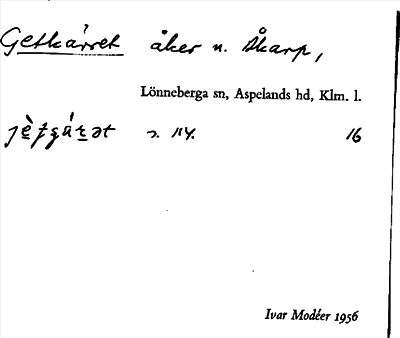 Getkärret åker n. Skarp,
Lönneberga sn, Aspelands hd, Klm. l.
s. 114. 16
Ivar Modéer 1956